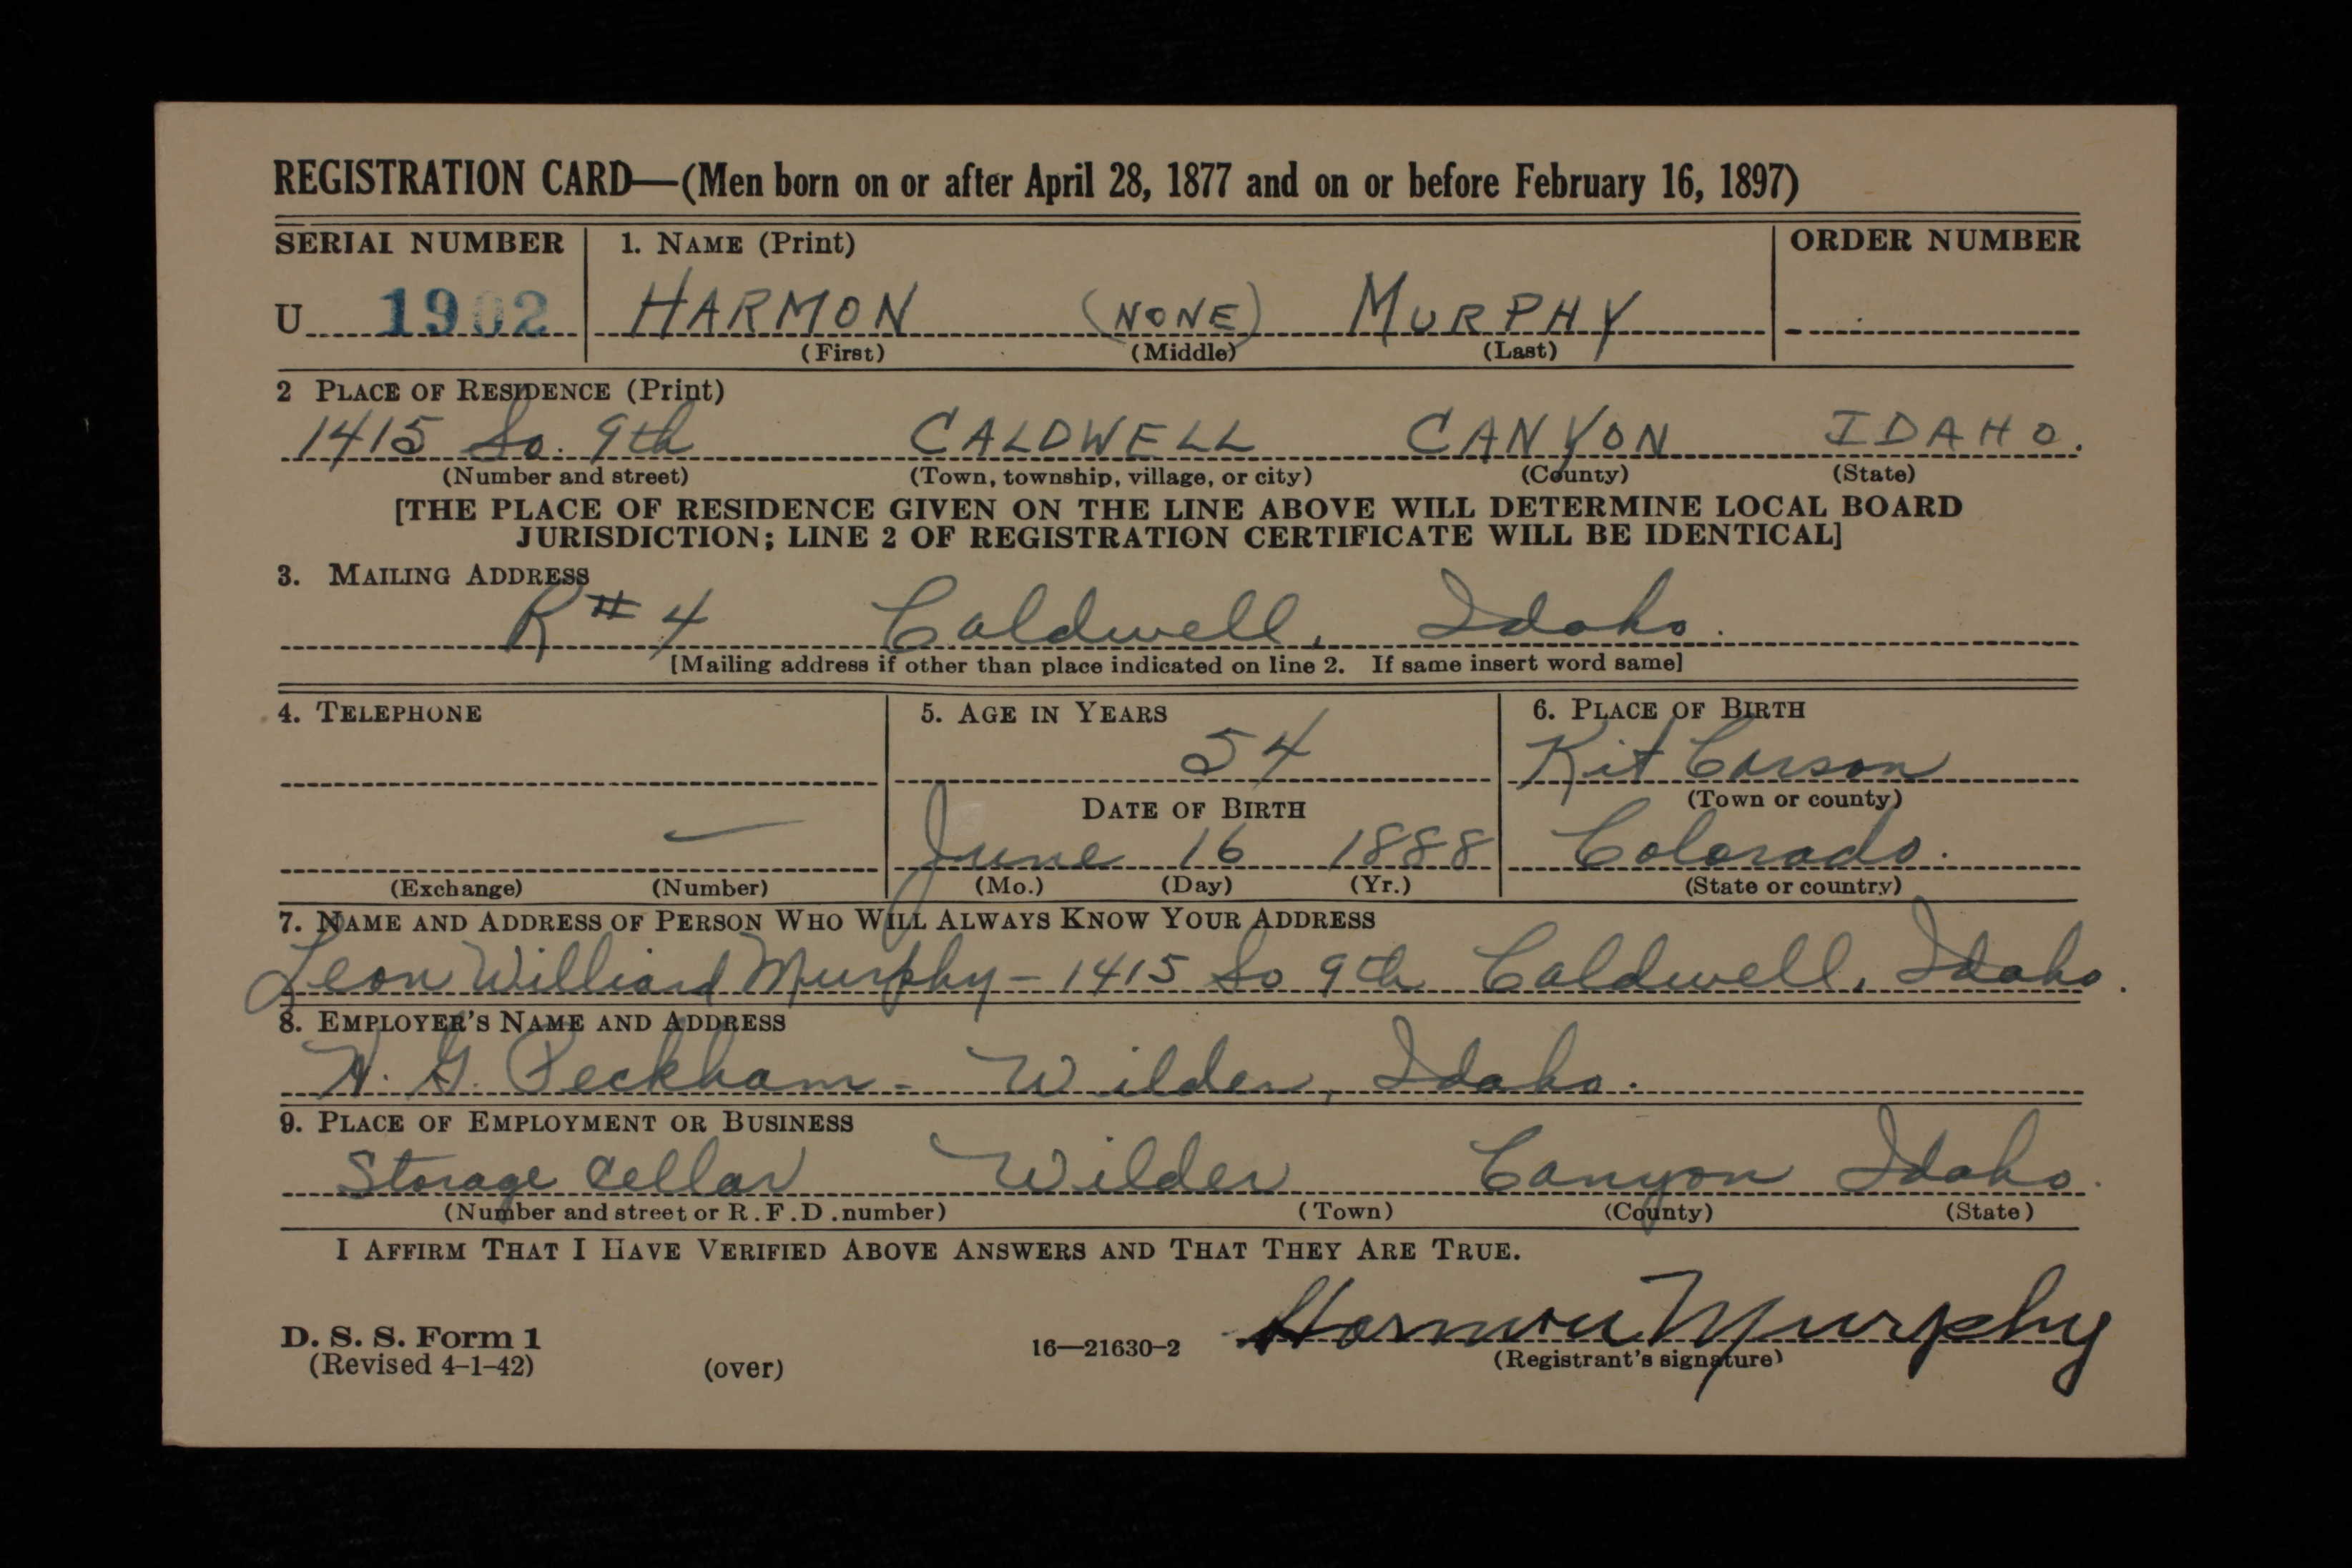 REGISTRATION CARD—(Men born on or after April 28, 1877 and on or before February 16, 1897)
SERIAL NUMBER 1. NAME (Print) ORDER NUMBER
U 1902 HARMON (NONE) MURPHY
(First) (Middle) (Last)
2 PLACE OF RESIDENCE (Print)
1415 So. 9th CALDWELL CANYON IDAHO.
(Number and street) (Town, township, village, or city) (County) (State)
[THE PLACE OF RESIDENCE GIVEN ON THE LINE ABOVE WILL DETERMINE LOCAL BOARD
JURISDICTION; LINE 2 OF REGISTRATION CERTIFICATE WILL BE IDENTICAL]
3. MAILING ADDRESS
R#4 Caldwell, Idaho.
[Mailing address if other than place indicated on line 2. If same insert word same]
4. TELEPHONE 5. AGE IN YEARS 6. PLACE OF BIRTH
54 Kit Carson
DATE OF BIRTH (Town or county)
— June 16 1888 Colorado.
(Exchange) (Number) (Mo.) (Day) (Yr.) (State or country)
7. NAME AND ADDRESS OF PERSON WHO WILL ALWAYS KNOW YOUR ADDRESS
Leon Williard Murphy - 1415 So 9th Caldwell, Idaho.
8. EMPLOYER'S NAME AND ADDRESS
H. G. Peckham - Wilder, Idaho.
9. PLACE OF EMPLOYMENT OR BUSINESS
Storage cellar Wilder Canyon Idaho.
(Number and street or R.F.D. number) (Town) (County) (State)
I AFFIRM THAT I HAVE VERIFIED ABOVE ANSWERS AND THAT THEY ARE TRUE.
Harmon Murphy
D. S. S. Form 1 16—21630-2 (Registrant's signature)
(Revised 4-1-42) (over)